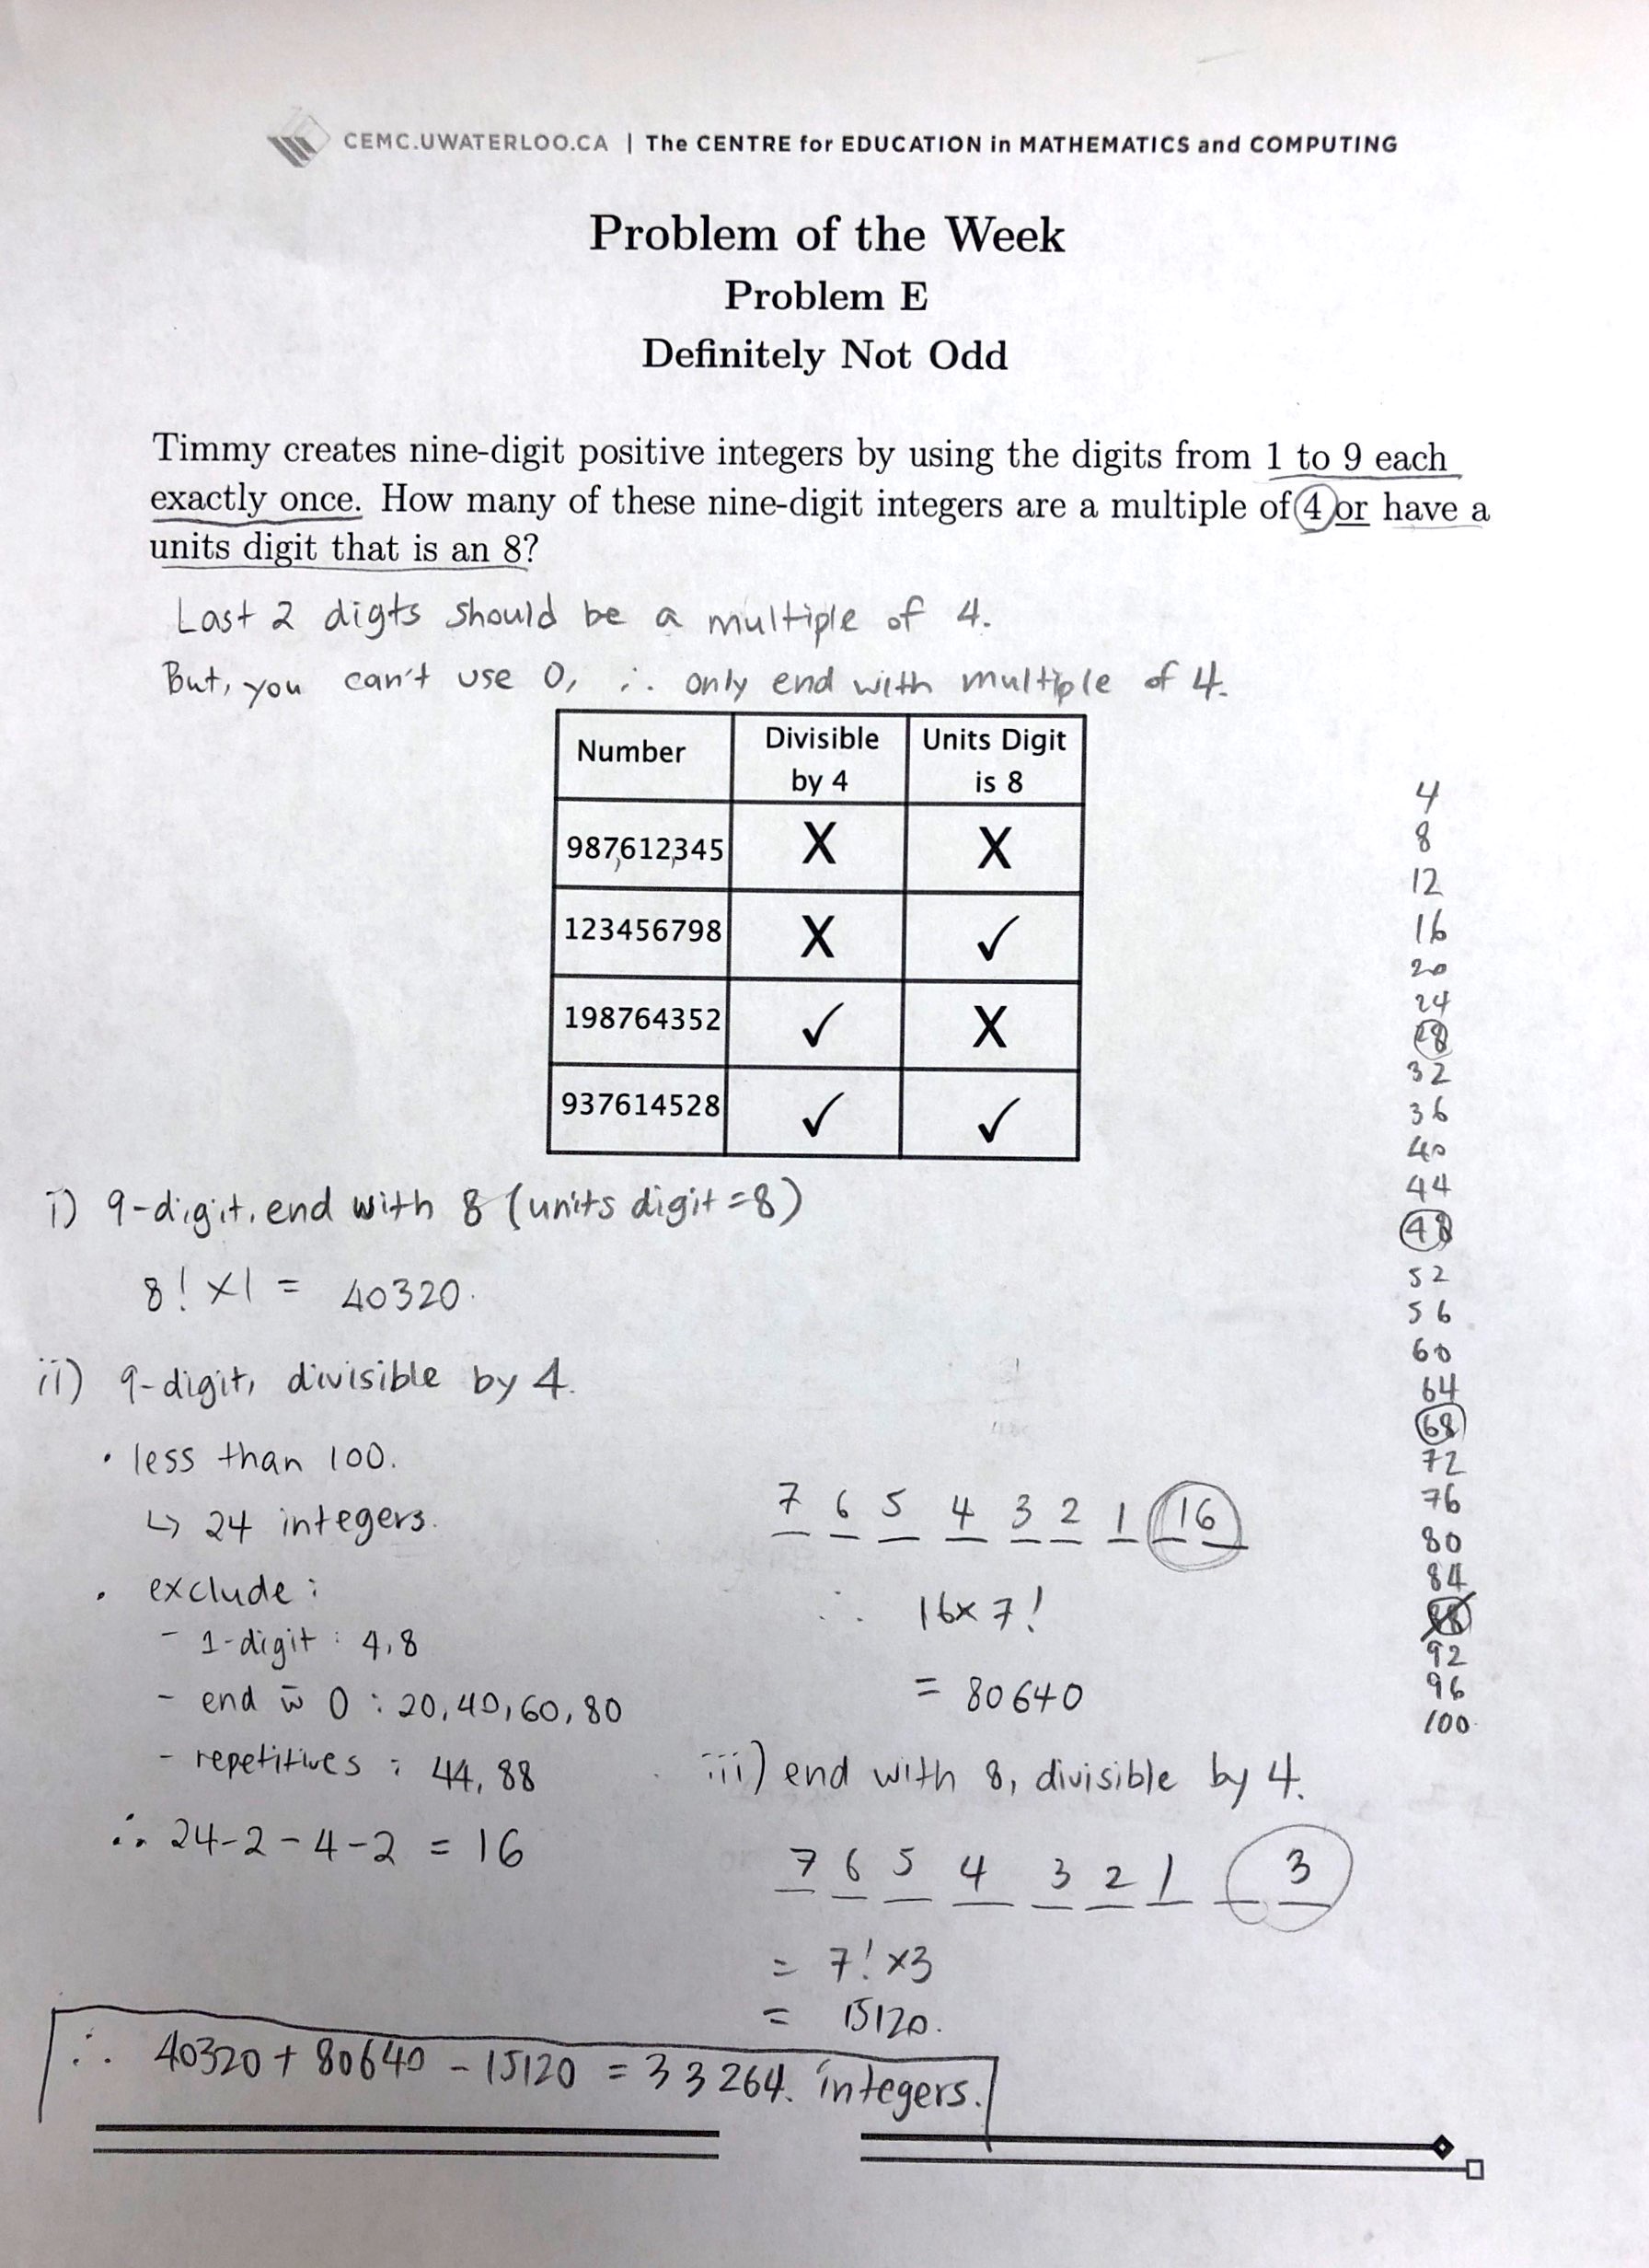 CEMC.UWATERLOO.CA | The CENTRE for EDUCATION in MATHEMATICS and COMPUTING
Problem of the Week
Problem E
Definitely Not Odd
Timmy creates nine-digit positive integers by using the digits from 1 to 9 each
exactly once. How many of these nine-digit integers are a multiple of 4 or have a
units digit that is an 8?
Last 2 digts should be a multiple of 4.
But, you can't use 0, ∴ only end with multiple of 4.
Number Divisible by 4 Units Digit is 8
987612345 X X
123456798 X ✓
198764352 ✓ X
937614528 ✓ ✓
4
8
12
16
20
24
28
32
36
40
44
48
52
56
60
64
68
72
76
80
84
88
92
96
100
i) 9-digit, end with 8 (units digit=8)
8! ×1 = 40320.
ii) 9-digit, divisible by 4.
• less than 100.
↳ 24 integers.
• exclude :
- 1-digit : 4,8
- end w̄ 0 : 20,40,60,80
- repetitives : 44, 88
∴ 24-2-4-2 = 16
7 6 5 4 3 2 1 16
∴ 16×7!
= 80640
iii) end with 8, divisible by 4.
7 6 5 4 3 2 1 3
= 7! ×3
= 15120.
∴ 40320 + 80640 - 15120 = 33264. integers.